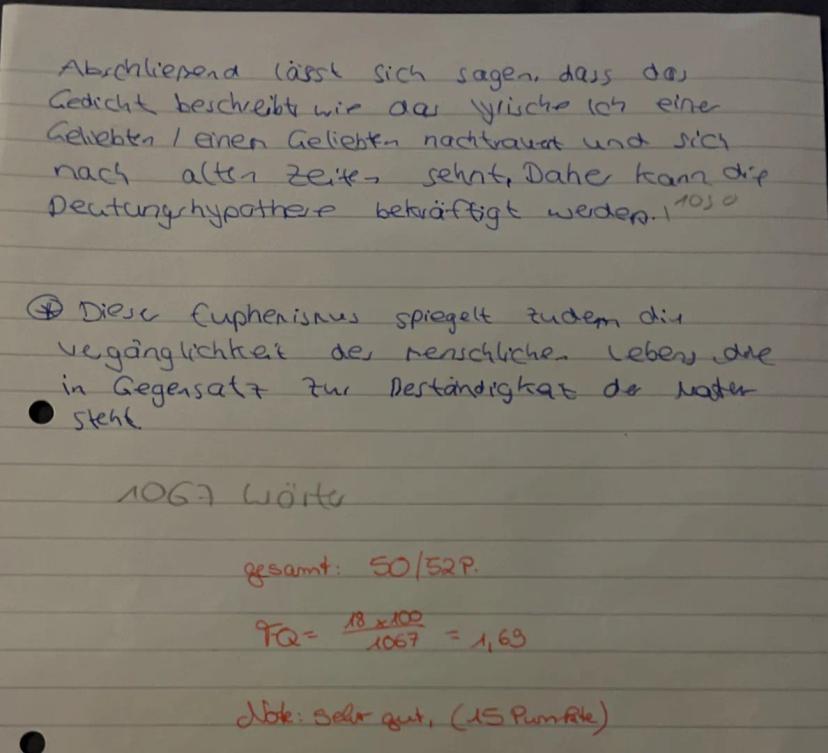 Abschließend lässt sich sagen, dass das
Gedicht beschreibt, wie das lyrische Ich einer
Geliebten / einen Geliebten nachtrauert und sich
nach alten Zeiten sehnt. Daher kann die
Deutungshypothese bekräftigt werden. | 1030
* Diese Euphemismus spiegelt zudem die
Vegänglichkeit des menschlichen Lebens, die
in Gegensatz zur Beständigkeit der Natur
steht
1067 Wörter
gesamt: 50/52P.
FQ = 18 x 100 / 1067 = 1,69
Note: sehr gut, (15 Punkte)